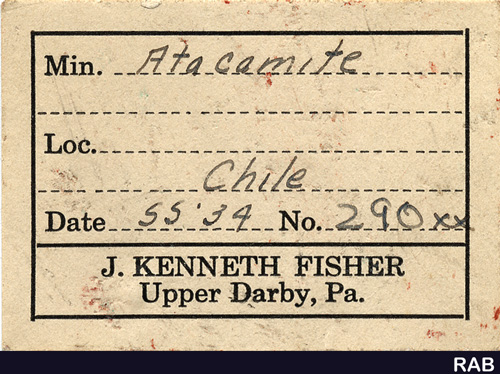 Min. Atacamite
Loc.
Chile
Date SS'34 No. 290xx
J. KENNETH FISHER
Upper Darby, Pa.
RAB